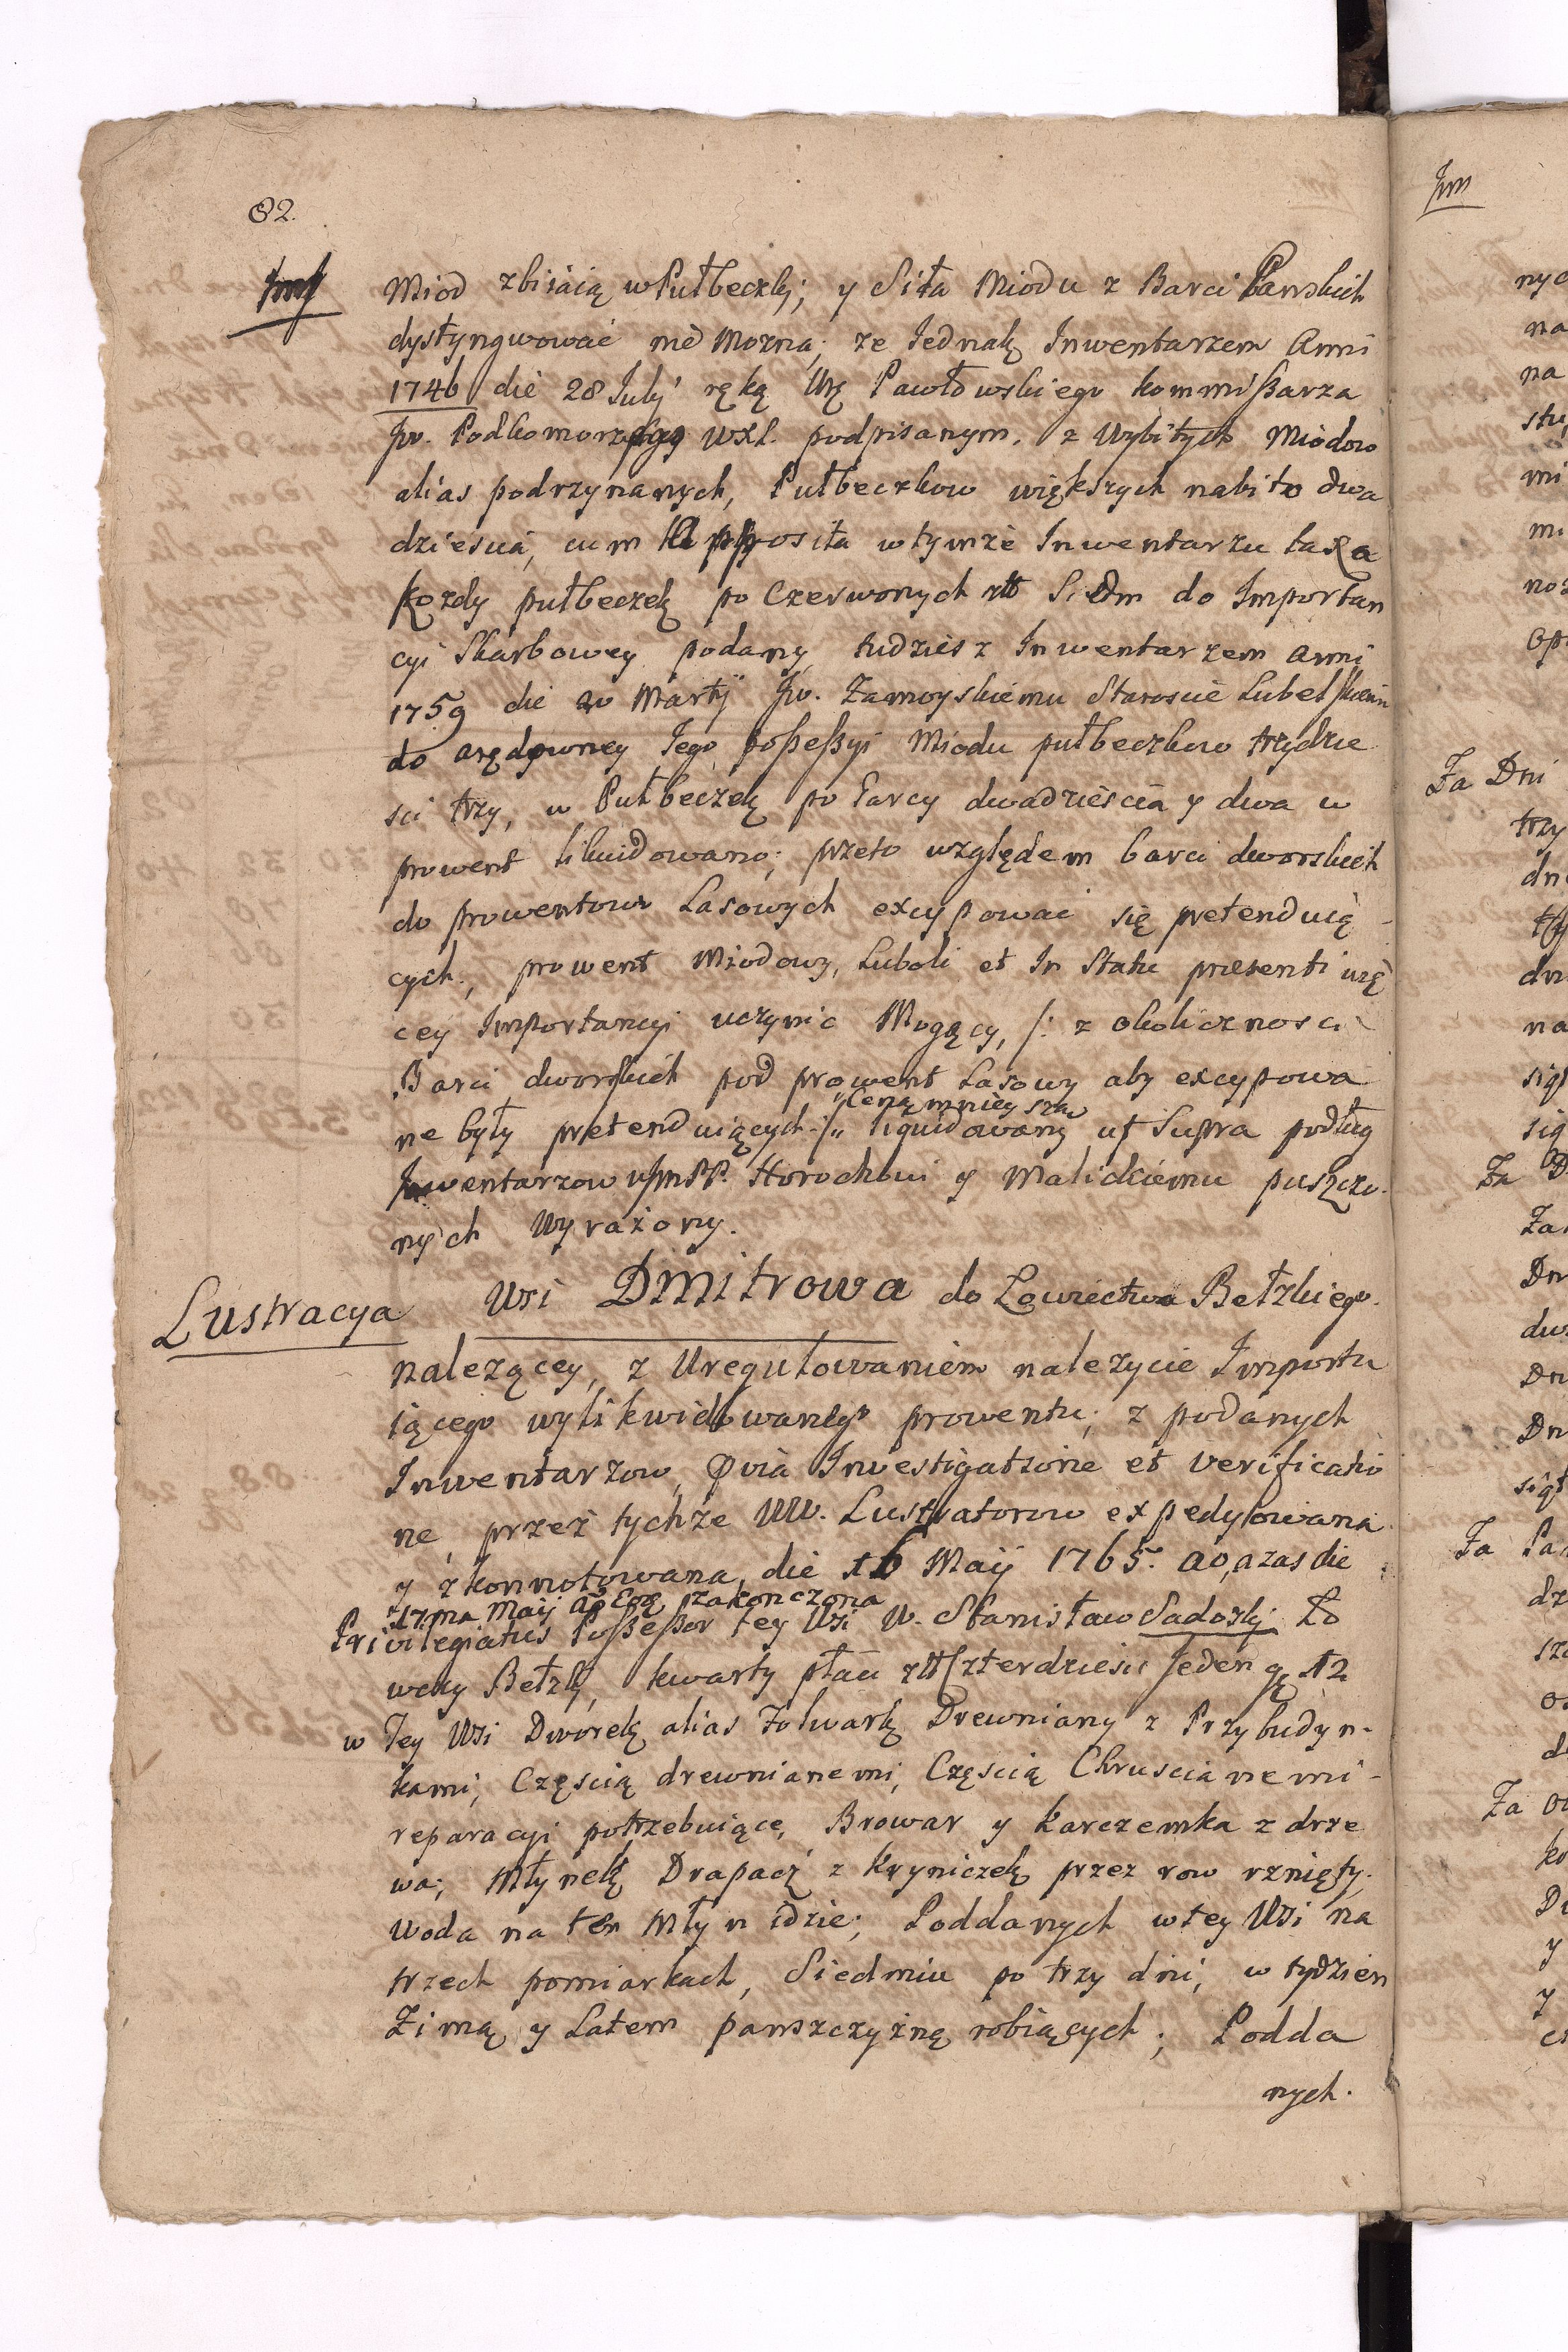 82.
Miod zbiiaią w Pułbeczki; y siła Miodu z Barci Panskich
dystyngwować nie Mozna; ze Iednak Inwentarzem Anni
1746 die 28 Julij ręką Pawłowskiego kommißarza
Jw. Podkomorzego WXL. podpisanym, z Wybitych Miodow
alias podrzynanych, Pułbeczkow większych nabito dwa
dziescia, cum apposita w tymże Inwentarzu taxa
kozdy pułbeczek po Czerwonych złł Siedm do Importan
cyi Skarbowey podany, tudziesz Inwentarzem anni
1759 die 20 Martij Jw. Zamoyskiemu Staroscie Lubelskiemu
do arędowney Iego poßeßyi Miodu pułbeczkow trzydzie
sci trzy, w Pułbeczek po Garcy dwadzieścia y dwa w
prowent likwidowano; przeto względem barci dworskich
do prowentow Lasowych excypowac się pretenduią
cych, prowent Miodowy, Luboli et In Statu presenti wię
cey Importancyi uczynic Mogący, /: z okolicznosci
Barci dworskich pod prowent Lasowy aby excypowa
ne były pretenduiących :/ liquidowany ut Supra podług
Ceną mnieyszą
Inwentarzow Horochowi y Malickiemu puszczo
nych Wyrażony.
Lustracya Wsi Dmitrowa do Łowiectwa Bełzkiego
nalezącey, z Uregulowaniem nalezycie Importu
iącego wylikwidowanego prowentu; z podanych
Inwentarzow, Quia Investigatione et verificatio
ne, przez tychże WW. Lustratorow expedyiowana
y zkonnotowana, die 16 Maij 1765. ao, a zas die
17ma Maij ao Eoę zakonczona
Privilegiatus Poßeßor tey Wsi W. Stanisław Sadoski Ło
wczy Bełzki, kwarty płaci złł Czterdziesci Jeden gę 12
w Tey Wsi Dworek alias Folwark Drewniany z Przybudyn-
kami, Częscią drewnianemi, Częscią Chruscianemi -
reparacyi potrzebuiące, Browar y karczemka z drze
wa; Młynek Drapacz z kryniczek przez row rznięty,
woda na ten Młyn idzie; Poddanych w tey Wsi na
trzech pomiarkach, Siedmiu po trzy dni, w tydzien
Zimą y Latem panszczyznę robiących; Podda
nych.